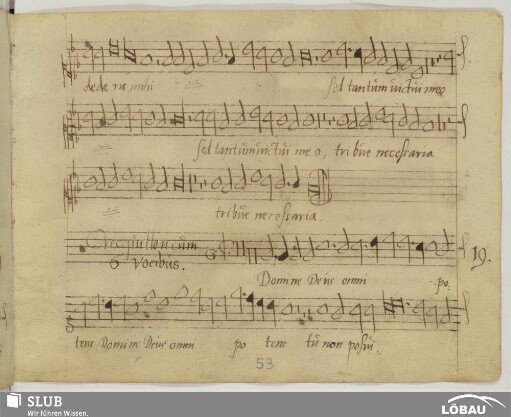 dede ris mihi sed tantum victui meo
sed tantum victui me o, tribue necessaria
tribue necessaria
Crecquillon cum
6 Vocibus.
19.
Domine Deus omni po:
tens Domine Deus omni po tens tu non possu
53
SLUB
Wir führen Wissen.
LÖBAU